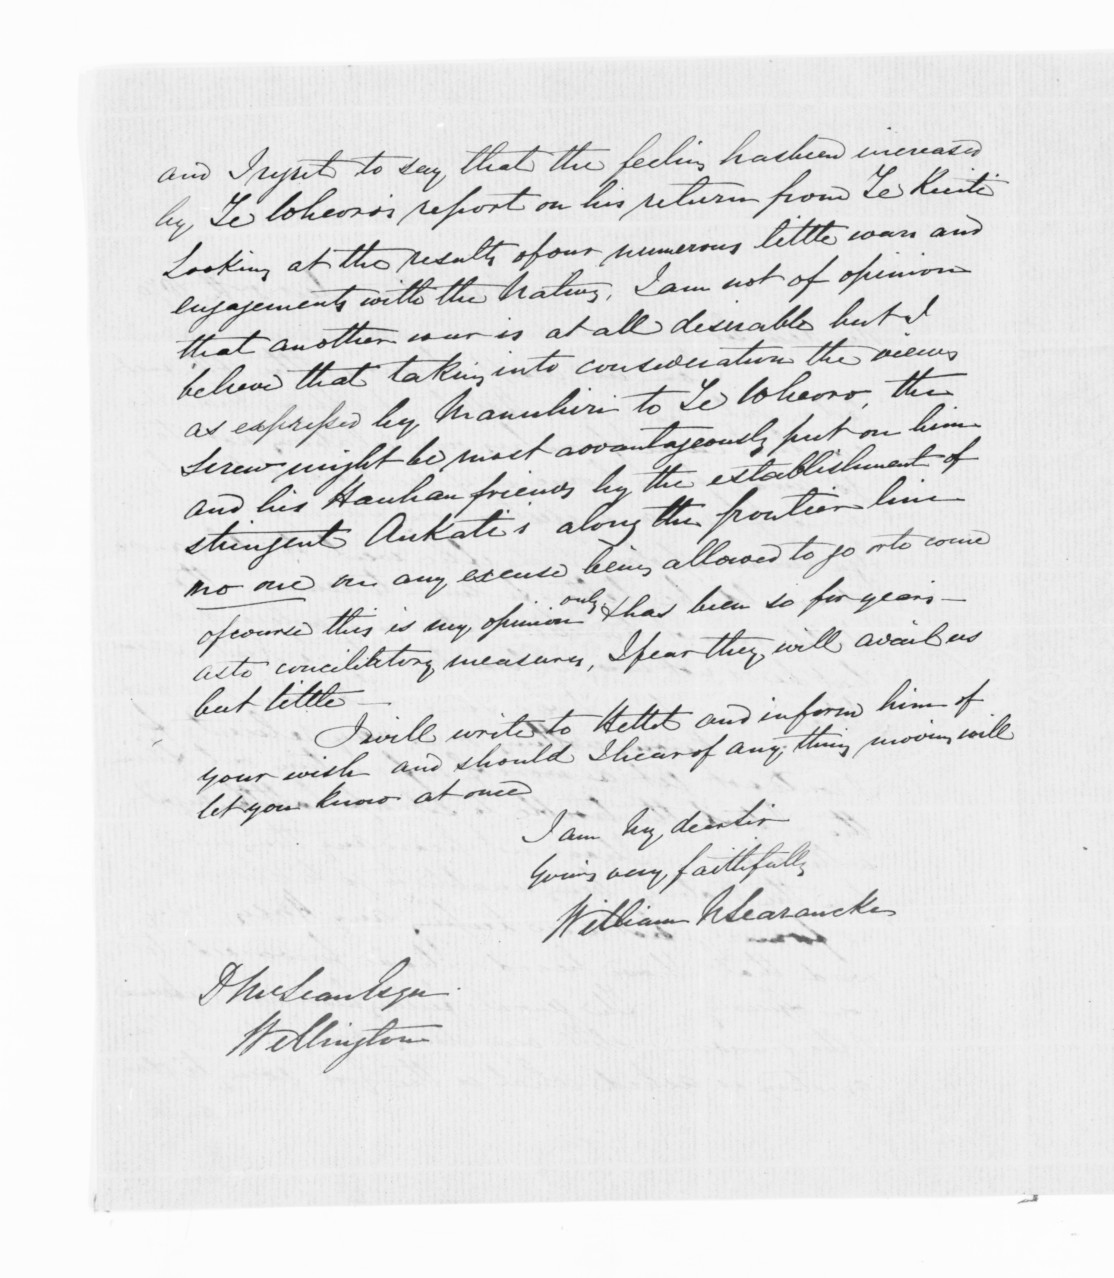 and I regret to say that the feeling has been increased
by Te Wheoro's report on his return from Te Kuiti
Looking at the results of our numerous little wars and
engagements with the Natives, I am not of opinion
that another war is at all desirable but I
believe that taking into consideration the views
as expressed by Manuhiri to Te Wheoro, the
screw might be most advantageously put on him
and his Hauhau friends by the establishment of
stringent Aukati's along the frontier line
no one on any excuse being allowed to go or to come
of course this is my opinion only & has been so for years—
as to concilitory measures, I fear they will avail us
but little—
I will write to Hettit and inform him of
your wish and should I hear of any thing moving will
let you know at once
I am My dear Sir
yours very faithfully
William N Searancke
D McLean Esqre
Wellington